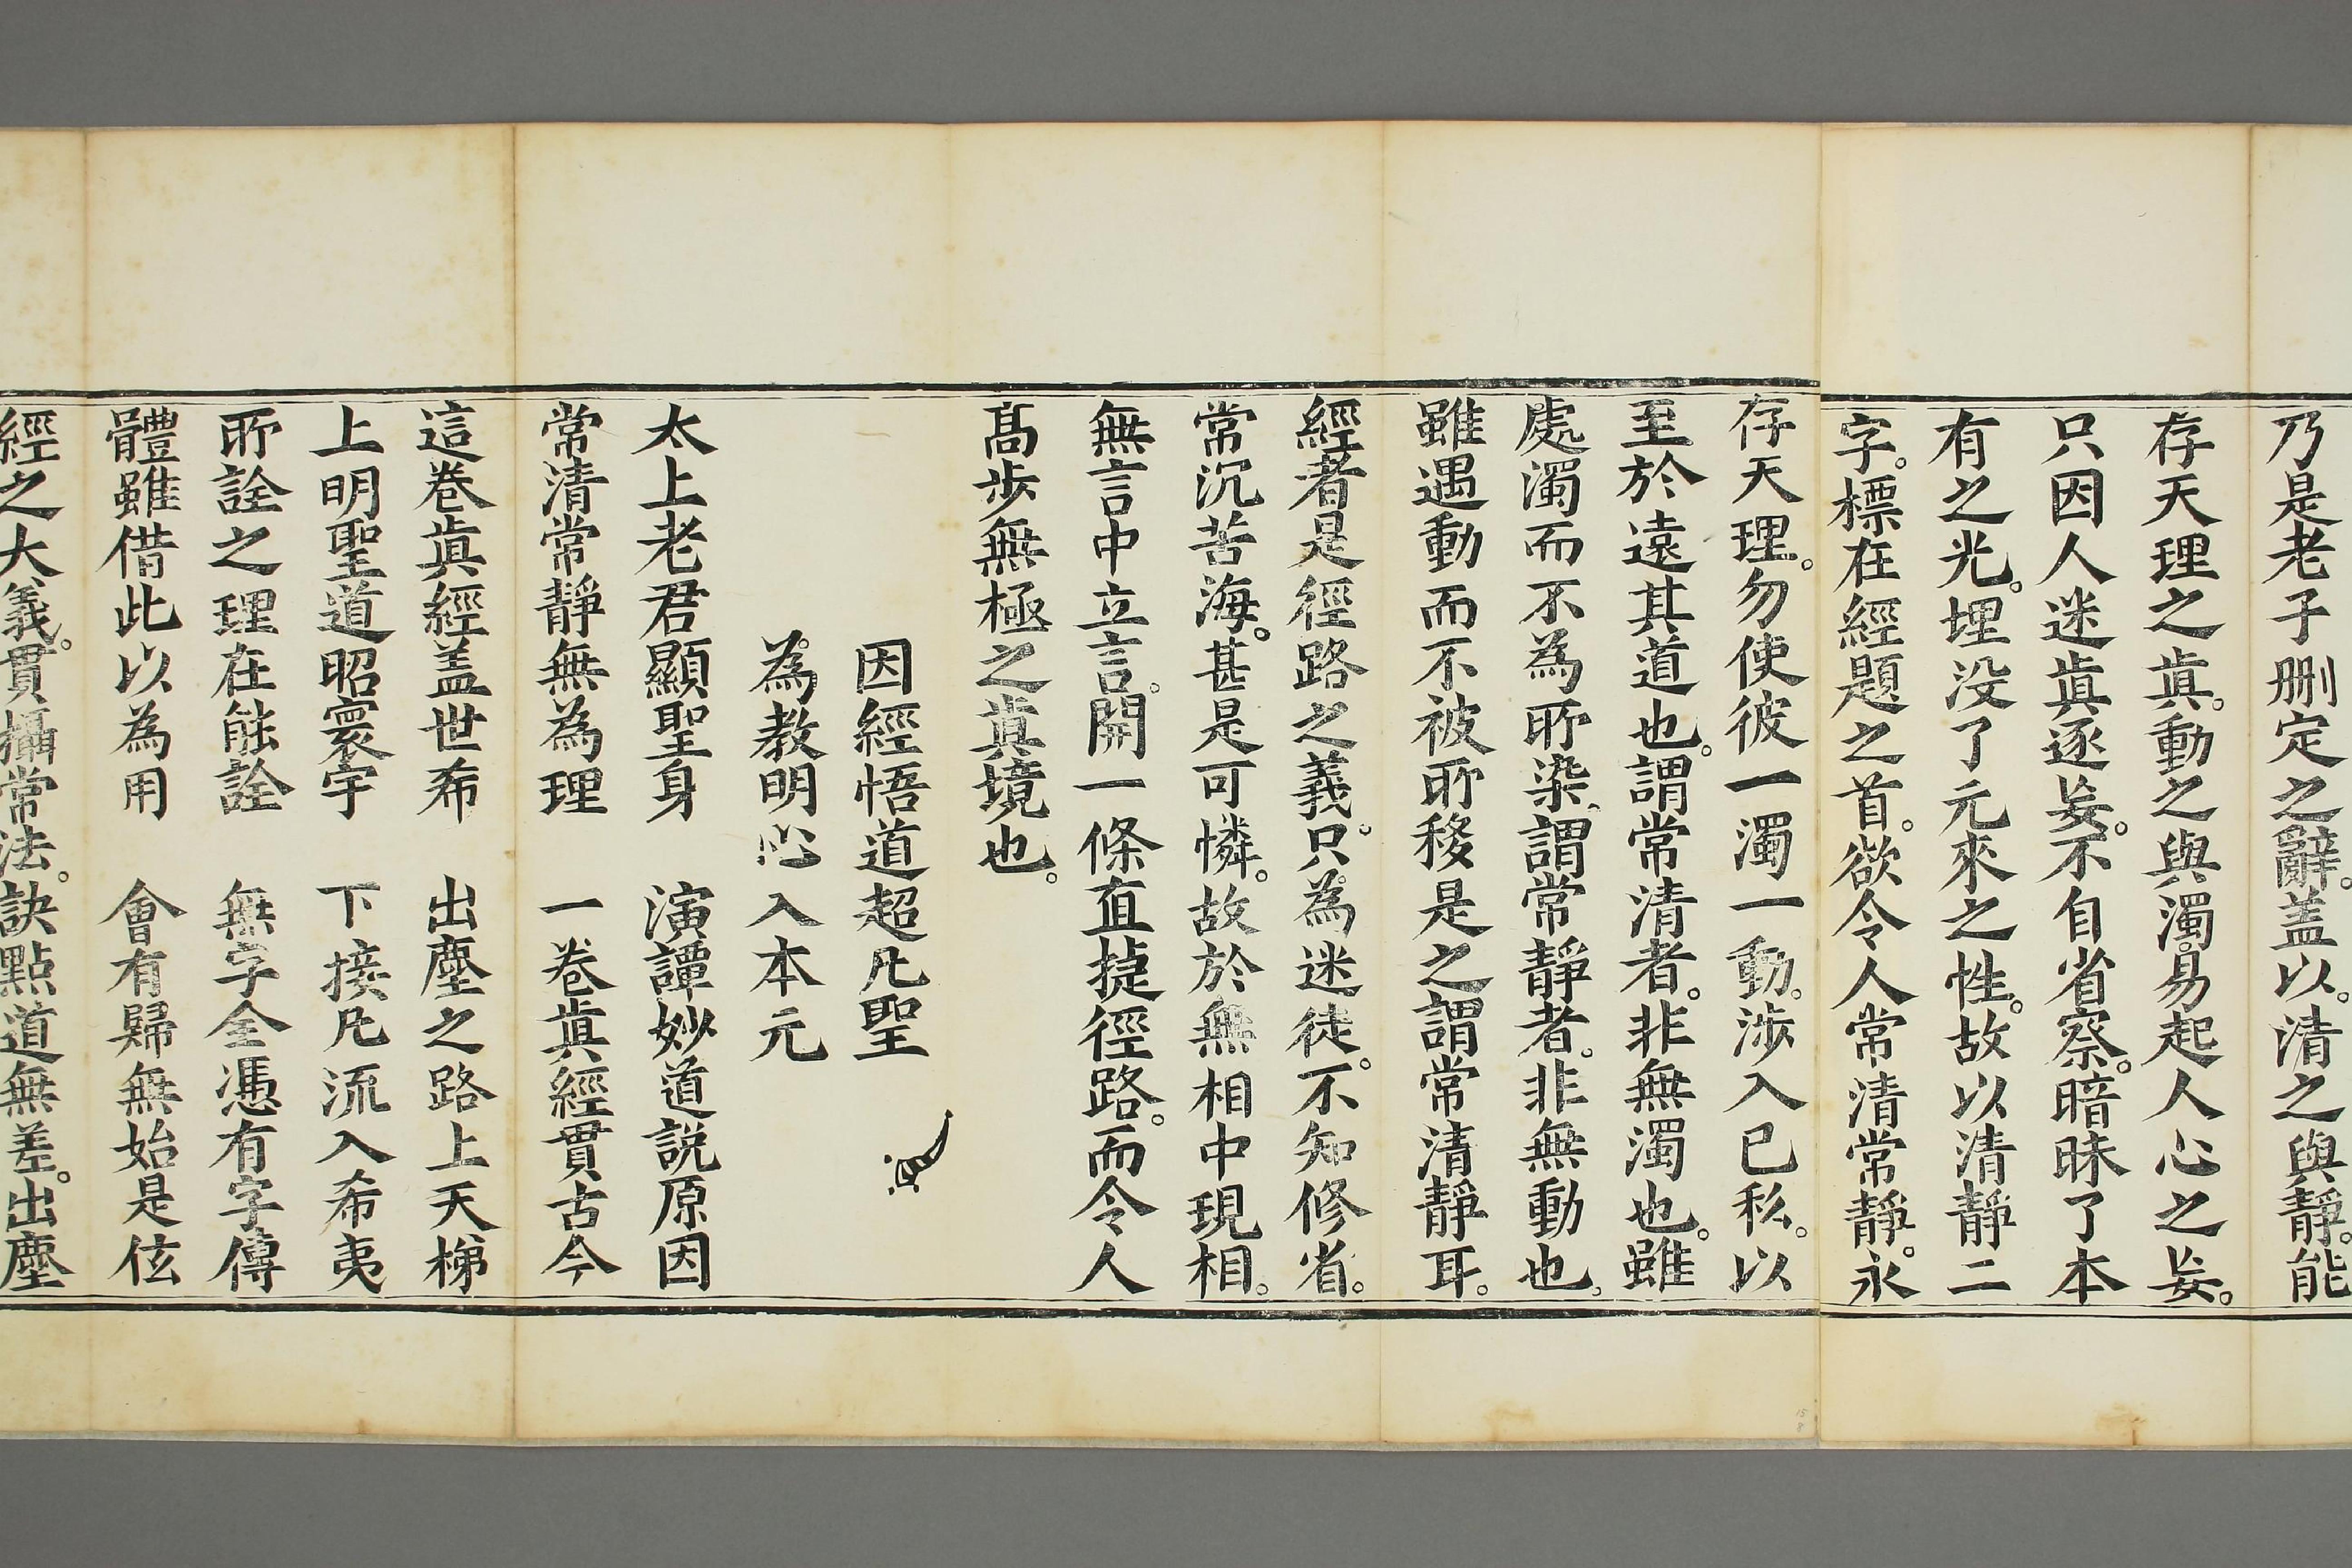 乃是老子刪定之辭。盖以。清之與靜。能
存天理之真。動之與濁。易起人心之妄。
只因人迷真逐妄。不自省察。暗昧了本
有之光。埋没了元來之性。故以清靜二
字。標在經題之首。欲令人常清常靜。永
存天理。勿使彼一濁一動。涉入已私。以
至於遠其道也。謂常清者。非無濁也。雖
處濁而不為所染。謂常靜者。非無動也。
雖遇動而不被所移是之謂常清靜耳。
經者是徑路之義。只為迷徒。不知修省。
常沉苦海。甚是可憐。故於無相中現相。
無言中立言。開一條直捷徑路。而令人
髙步無極之真境也。
因經悟道超凡聖
為教明心入本元
太上老君顯聖身　演譚妙道説原因
常清常靜無為理　一卷真經貫古今
這卷真經盖世希　出塵之路上天梯
上明聖道昭寰宇　下接凡流入希夷
所詮之理在能詮　無字全憑有字傳
體雖借此以為用　會有歸無始是伭
經之大義。貫攝常法。訣點道無差。出塵